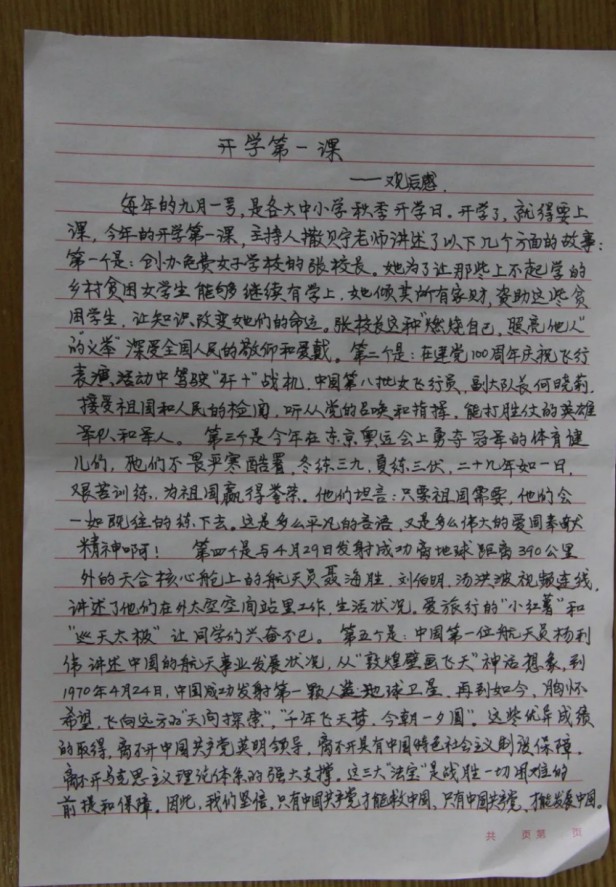 开学第一课
——观后感.
每年的九月一号,是各大中小学秋季开学日。开学了,就得要上
课,今年的开学第一课,主持人撒贝宁老师讲述了以下几个方面的故事:
第一个是:创办免费女子学校的张校长。她为了让那些上不起学的
乡村贫困女学生能够继续有学上,她倾其所有家财,资助这些贫
困学生,让知识改变她们的命运。张校长这种"燃烧自己,照亮他人"
的"义举"深受全国人民的敬仰和爱戴。第二个是:在建党100周年庆祝飞行
表演活动中驾驶"歼十"战机,中国第八批女飞行员,副大队长何晓莉,
接受祖国和人民的检阅,听从党的召唤和指挥,能打胜仗的英雄
军队和军人。第三个是今年在东京奥运会上勇夺冠军的体育健
儿们,他们不畏严寒酷署,冬练三九,夏练三伏,二十九年如一日,
艰苦训练,为祖国赢得誉荣。他们坦言:只要祖国需要,他们会
一如既往的练下去。这是多么平凡的言语,又是多么伟大的爱国奉献
精神啊!第四个是与4月29日发射成功离地球距离390公里
外的天合核心舱上的航天员聂海胜,刘伯明,汤洪波视频连线,
讲述了他们在外太空空间站里工作,生活状况。爱旅行的"小红薯"和
"巡天太极"让同学们兴奋不已。第五个是:中国第一位航天员杨利
伟讲述中国的航天事业发展状况,从"敦煌壁画飞天"神话想象,到
1970年4月24日,中国成功发射第一颗人造地球卫星,再到如今,胸怀
希望,飞向远方的"天问探索","千年飞天梦,今朝一夕圆"。这些优异成绩
的取得,离不开中国共产党英明领导,离不开具有中国特色社会主义制度保障,
离不开马克思主义理论体系的强大支撑。这三大"法宝"是战胜一切困难的
前提和保障。因此,我们坚信,只有中国共产党才能救中国、只有中国共产党、才能发展中国。
共 页 第 页